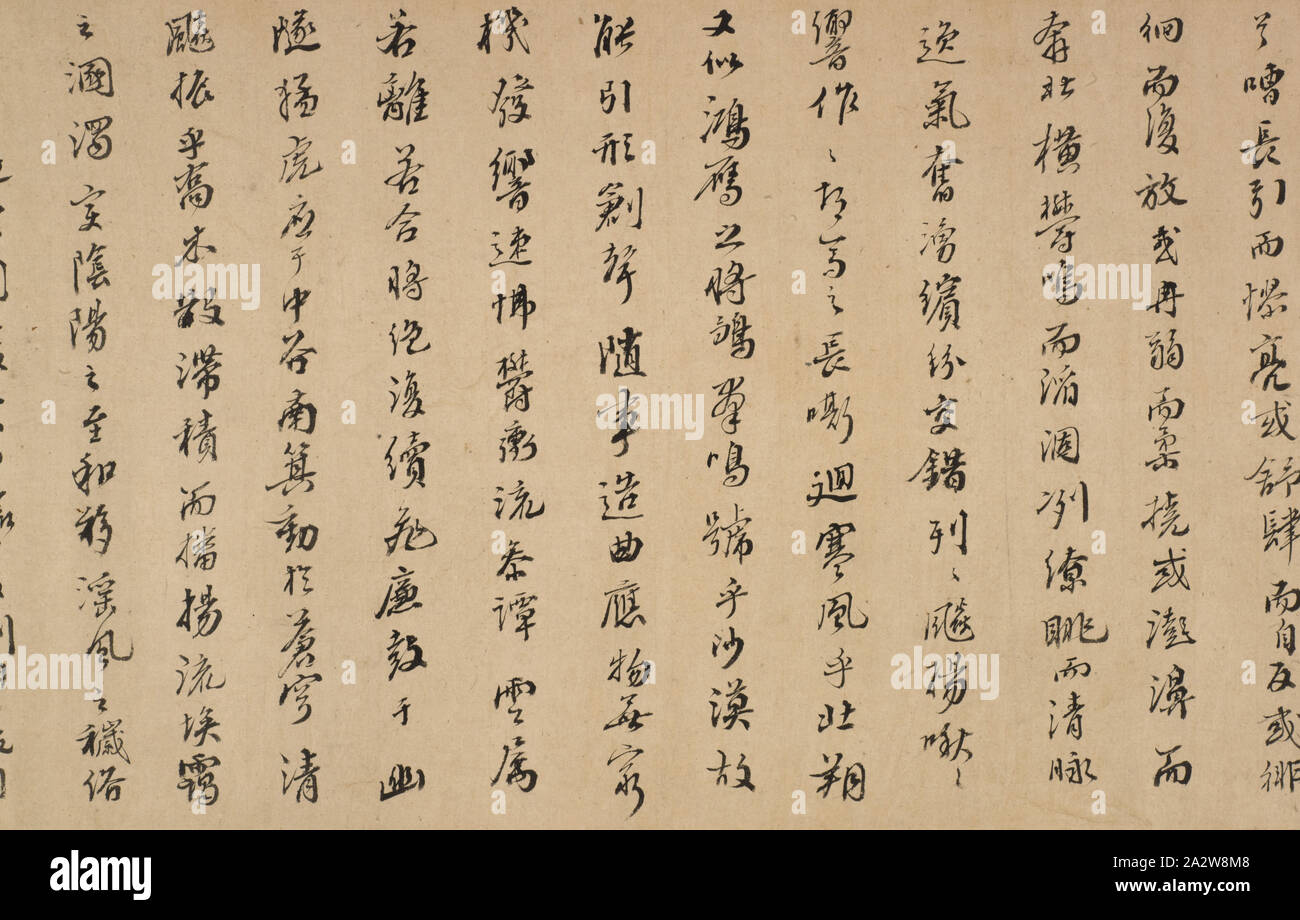 嘈長引而憀亮或舒肆而自反或徘
徊而復放或冉弱而柔撓或澎濞而
奔壯橫鬱鳴而滔涸冽繚眺而清昶
逸氣奮湧繽紛交錯列〻飈揚啾〻
響作〻胡馬之長嘶迴寒風乎北朔
又似鴻鴈之將鶵羣鳴號乎沙漠故
能引形創聲隨事造曲應物無窮
機發響速怫鬱衝流參譚雲属
若離若合將絕復續飛廉鼓于幽
隧猛虎應于中谷南箕動於蒼穹清
飈振乎喬木散滯積而播揚流埃靄
之溷濁變陰陽之至和移淫風之穢俗
alamy
Image ID: 2A2W8M8
www.alamy.com